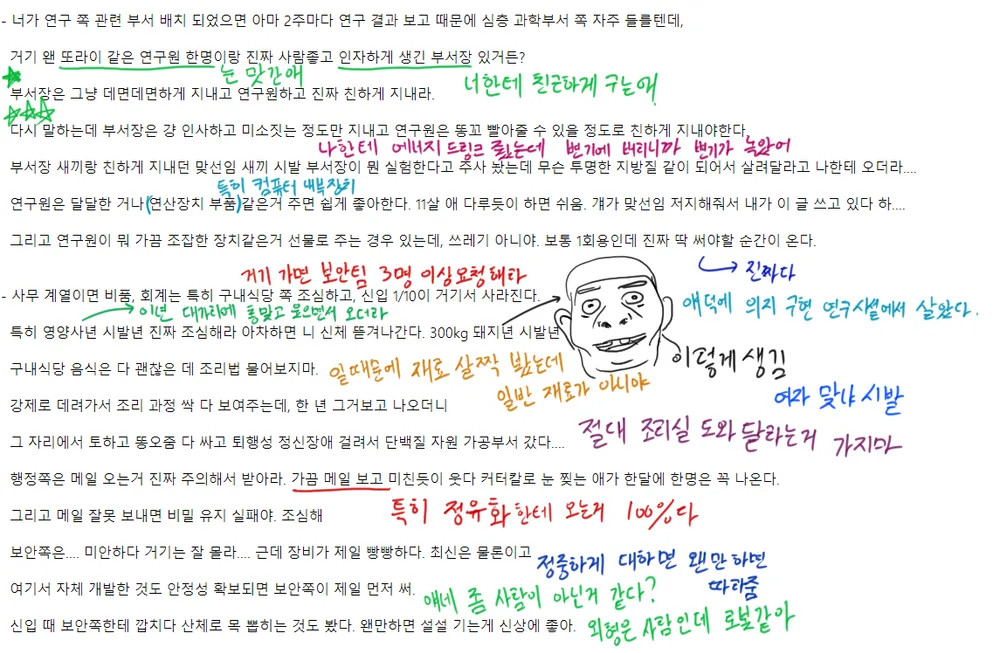 - 너가 연구 쪽 관련 부서 배치 되었으면 아마 2주마다 연구 결과 보고 때문에 심층 과학부서 쪽 자주 들를텐데,
거기 왠 또라이 같은 연구원 한명이랑 진짜 사람좋고 인자하게 생긴 부서장 있거든?
눈 맛간애
너한테 친근하게 구는애
부서장은 그냥 데면데면하게 지내고 연구원하고 진짜 친하게 지내라.
다시 말하는데 부서장은 걍 인사하고 미소짓는 정도만 지내고 연구원은 똥꼬 빨아줄 수 있을 정도로 친하게 지내야한다.
나한테 에너지 드링크 줬는데 변기에 버리니까 변기가 녹았어
부서장 새끼랑 친하게 지내던 맞선임 새끼 시발 부서장이 뭔 실험한다고 주사 놨는데 무슨 투명한 지방질 같이 되어서 살려달라고 나한테 오더라....
특히 컴퓨터 내부장치
연구원은 달달한 거나 (연산장치 부품)같은거 주면 쉽게 좋아한다. 11살 애 다루듯이 하면 쉬움. 걔가 맞선임 저지해줘서 내가 이 글 쓰고 있다 하....
그리고 연구원이 뭐 가끔 조잡한 장치같은거 선물로 주는 경우 있는데, 쓰레기 아니야. 보통 1회용인데 진짜 딱 써야할 순간이 온다.
진짜다
거기 가면 보안팀 3명 이상 요청해라
얘덕에 의지 구현 연구시설에서 살았다.
- 사무 계열이면 비품, 회계는 특히 구내식당 쪽 조심하고, 신입 1/10이 거기서 사라진다.
이년 대가리에 총맞고 웃으면서 오더라
특히 영양사년 시발년 진짜 조심해라 아차하면 니 신체 뜯겨나간다. 300kg 돼지년 시발년
이렇게 생김
구내식당 음식은 다 괜찮은 데 조리법 물어보지마.
일때문에 재료 살짝 봤는데
일반 재료가 아니야
여자 맞냐 시발
강제로 데려가서 조리 과정 싹 다 보여주는데, 한 년 그거보고 나오더니
그 자리에서 토하고 똥오줌 다 싸고 퇴행성 정신장애 걸려서 단백질 자원 가공부서 갔다....
절대 조리실 도와달라는거 가지마
행정쪽은 메일 오는거 진짜 주의해서 받아라. 가끔 메일 보고 미친듯이 웃다 커터칼로 눈 찢는 애가 한달에 한명은 꼭 나온다.
그리고 메일 잘못 보내면 비밀 유지 실패야. 조심해
특히 정유화한테 오는거 100%다
보안쪽은.... 미안하다 거기는 잘 몰라.... 근데 장비가 제일 빵빵하다. 최신은 물론이고
정중하게 대하면 왠만하면 따라줌
여기서 자체 개발한 것도 안정성 확보되면 보안쪽이 제일 먼저 써.
얘네 좀 사람이 아닌거 같다?
신입 때 보안쪽한테 깝치다 산체로 목 뽑히는 것도 봤다. 왠만하면 설설 기는게 신상에 좋아.
외형은 사람인데 로봇같아